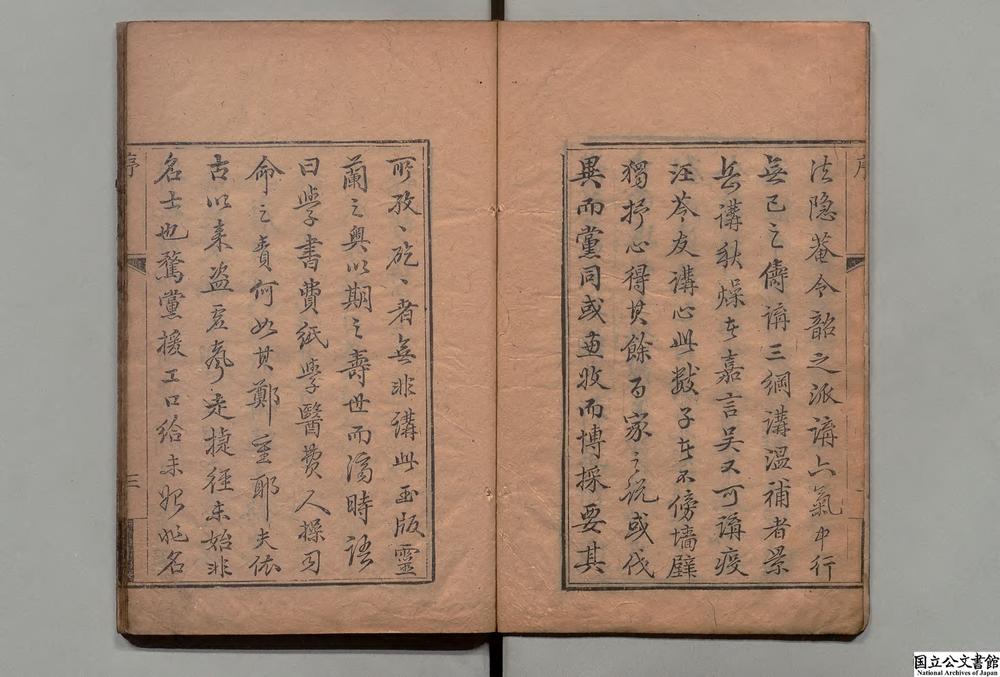 序
法隐菴今韶之派講六氣中行
無已之儔講三綱講温補者景
岳講秋燥在嘉言吴又可講疫
汪苓友講心此數子在不傍墻壁
獨抒心得其餘百家之説或伐
異而黨同或兼收而博採要其
所孜〻矻〻者無非講此玉版靈
蘭之奥以期之壽世而濟時語
曰學書費紙學醫費人操司
命之責何如其鄭重耶夫依
古以来盗虚聲走捷徑未始非
名士也騖黨援工口給未始非名
序
三
国立公文書館
National Archives of Japan